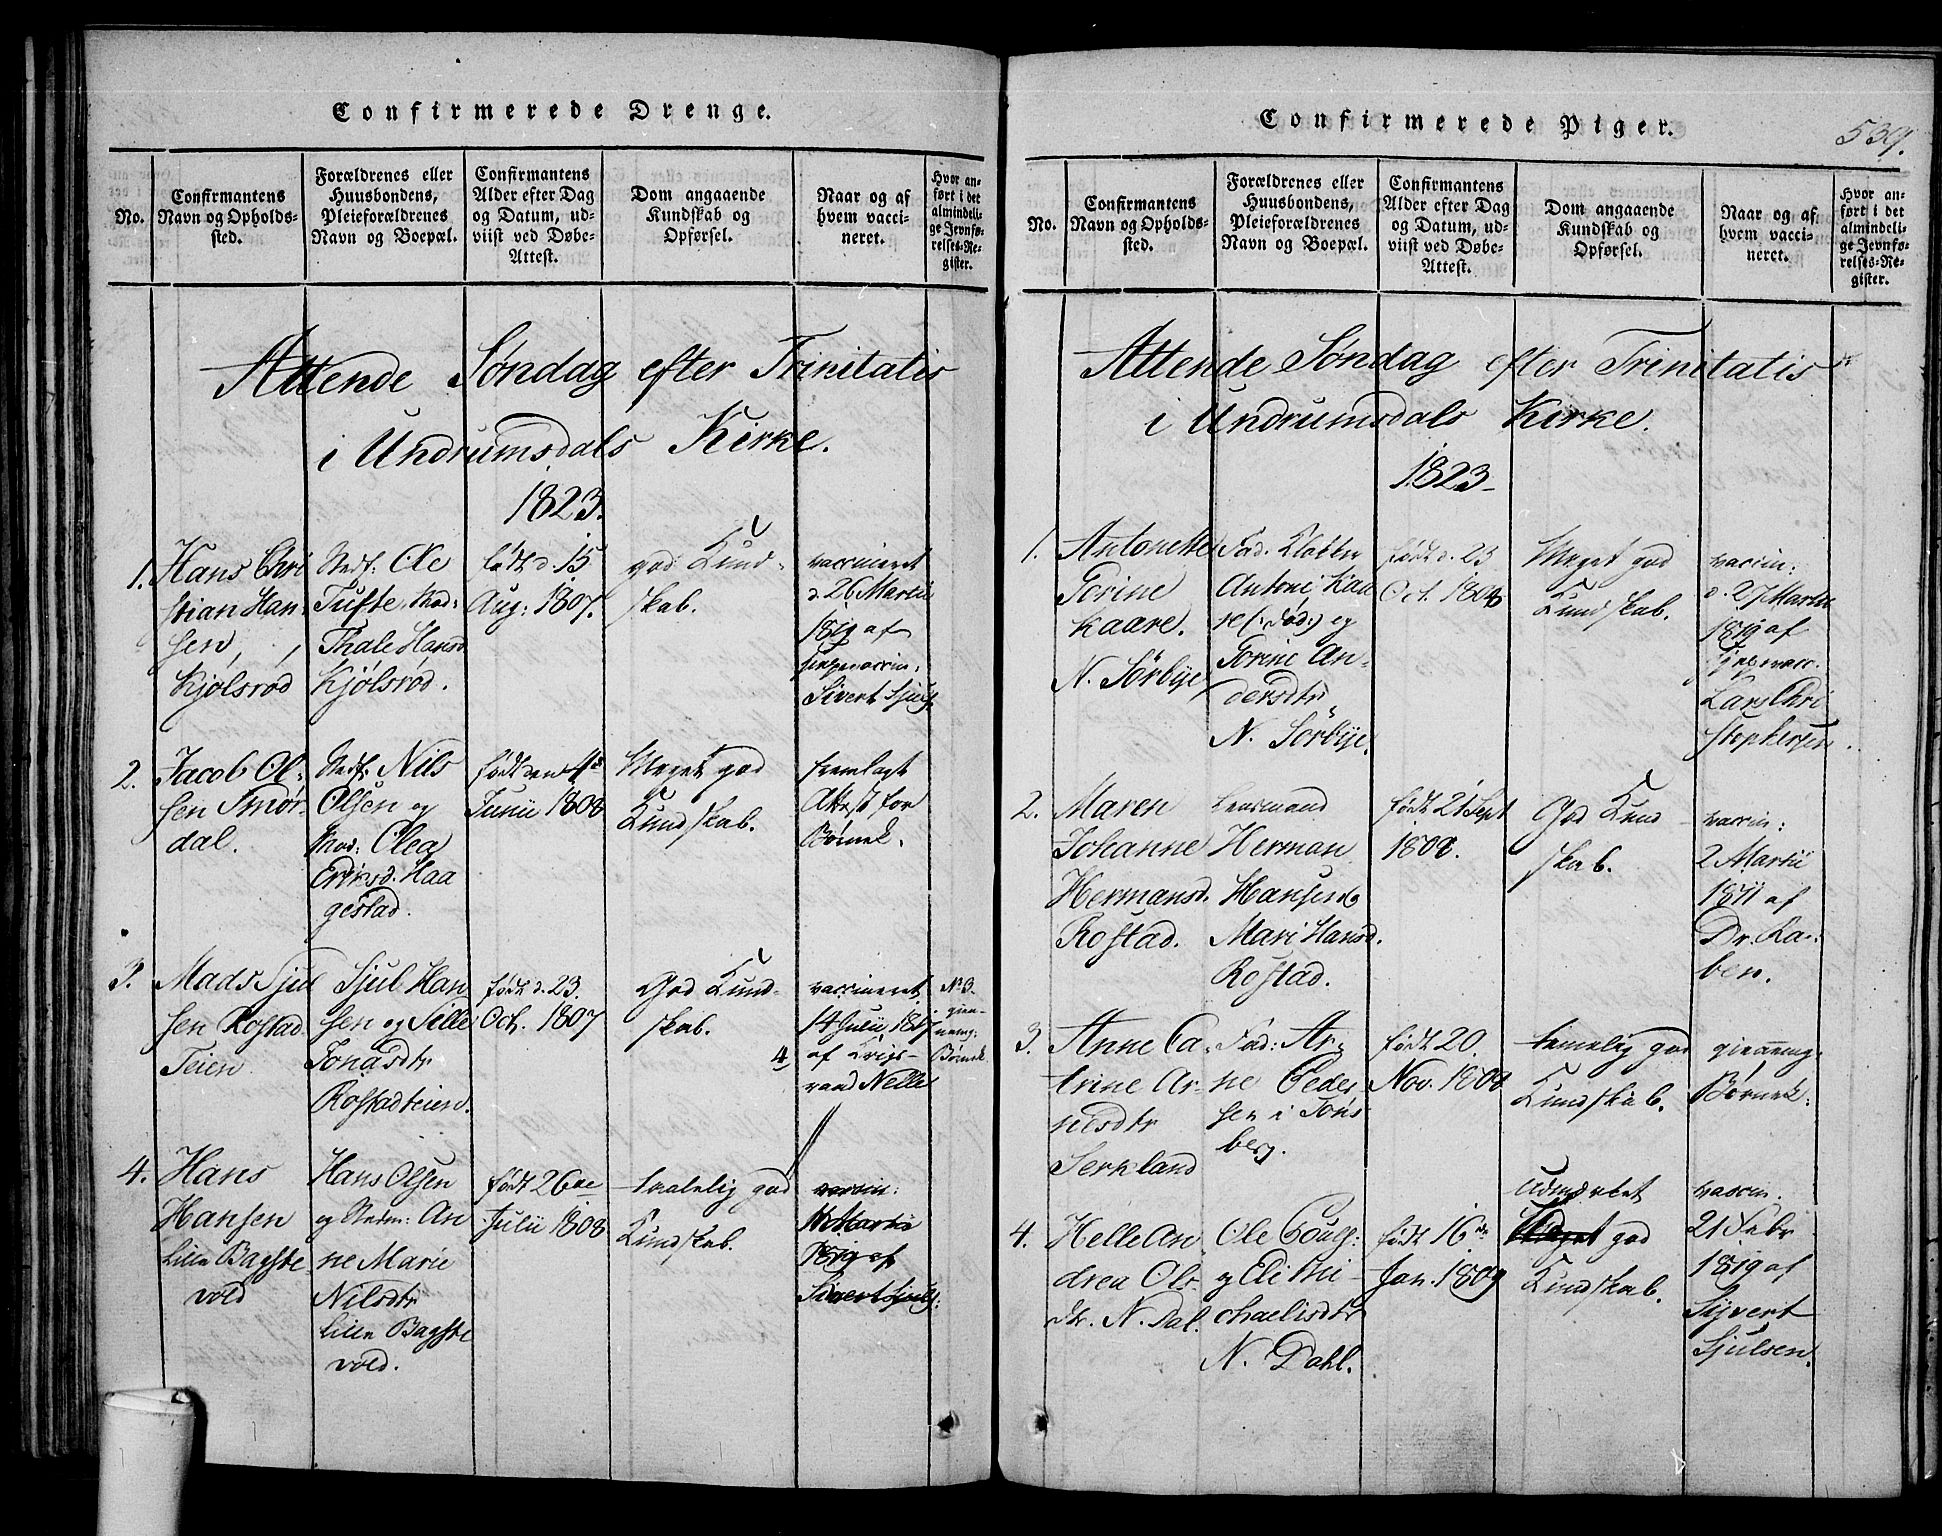 Confirmerede Drenge.
No.
Confirmantens
Navn og Opholds-
sted.
Forældrenes eller
Huusbondens,
Pleieforældrenes
Navn og Boepæl.
Confirmantens
Alder efter Dag
og Datum, ud-
viist ved Døbe-
Attest.
Dom angaaende
Kundskab og
Opførsel.
Naar og af
hvem vacci-
neret.
Hvor an-
ført i det
almindeli-
ge Jevnfø-
relses-Re-
gister.
Attende Søndag efter Trinitatis
i Undrumsdals Kirke.
1823.
1.
Hans Chri
stian Han-
sen,
Kjølsrød
Stedf: Ole
Tufte, Mod:
Thale Hansd
Kjølsrød.
født d. 15
Aug: 1807.
god Kund-
skab.
vaccineret
d. 26 Martii
1819 af
Sivert Sjuls
2.
Jacob Ol-
sen Smør-
dal.
Stedf: Nils
Olsen og
Mod: Olea
Eriksd. Haa
gestad.
født den 4de
Junii 1808
Meget god
Kundskab.
fremlagt
Attest for
Børnek.
3.
Mads Sjul
sen Rostad
Teien
Sjul Han
sen og Sille
Jonasdtr
Rostadteien.
født d. 23.
Oct. 1807
God Kund-
skab.
4
vaccineret
14 Julii 1817
af Krigs-
raad Nelle
No 3.
gien-
nemg:
Børnek.
4.
Hans
Hansen
Lille Bagste
vold
Hans Olsen
og Stedm: An
ne Marie
Nilsdtr
Lille Bagste
vold.
født 26de
Julii 1808
taalelig god
Kundskab.
vaccin:
Martii
1819 af
Sivert Sjuls:
Confirmerede Piger.
539.
No.
Confirmantens
Navn og Opholds-
sted.
Forældrenes eller
Huusbondens,
Pleieforældrenes
Navn og Boepæl.
Confirmantens
Alder efter Dag
og Datum, ud-
viist ved Døbe-
Attest.
Dom angaaende
Kundskab og
Opførsel.
Naar og af
hvem vacci-
neret.
Hvor an-
ført i det
almindeli-
ge Jevnfø-
relses-Re-
gister.
Attende Søndag efter Trinitatis
i Undrumsdals Kirke.
1823-
1.
Antonette
Gorine
Kaare.
N. Sørbye
Fad. Klokker
Antoni Kaa
re (: død:) og
Gorine An-
dersdtr
N. Sørbye.
født d. 23
Oct. 1808
Meget god
Kundskab.
vaccin:
d. 27 Martii
1819 af
Lars Chri
stophersen.
2.
Maren
Johanne
Hermansd.
Rostad.
Herman
Hansen &
Mari Hansd.
Rostad.
født 21 Sept
1808.
God Kund
skab.
vaccin:
2 Martii
1811 af
Dr. Ra-
ben.
3.
Anne Ca-
trine Ar-
nesdtr
Serkland
Fad: Ar-
ne Peder
sen i Tøns
berg.
født 20.
Nov. 1808
temelig god
Kundskab.
giennemg.
Børnek:
4.
Helle An
drea Ols-
dtr. N. Dal.
Ole Goulg:
og Eli Mi-
chaelisdtr
N. Dahl.
født 16de
Jan. 1809
Udmærket
Meget god
Kundskab.
vaccin.
21 Febr
1819 af
Syvert
Sjulsen.